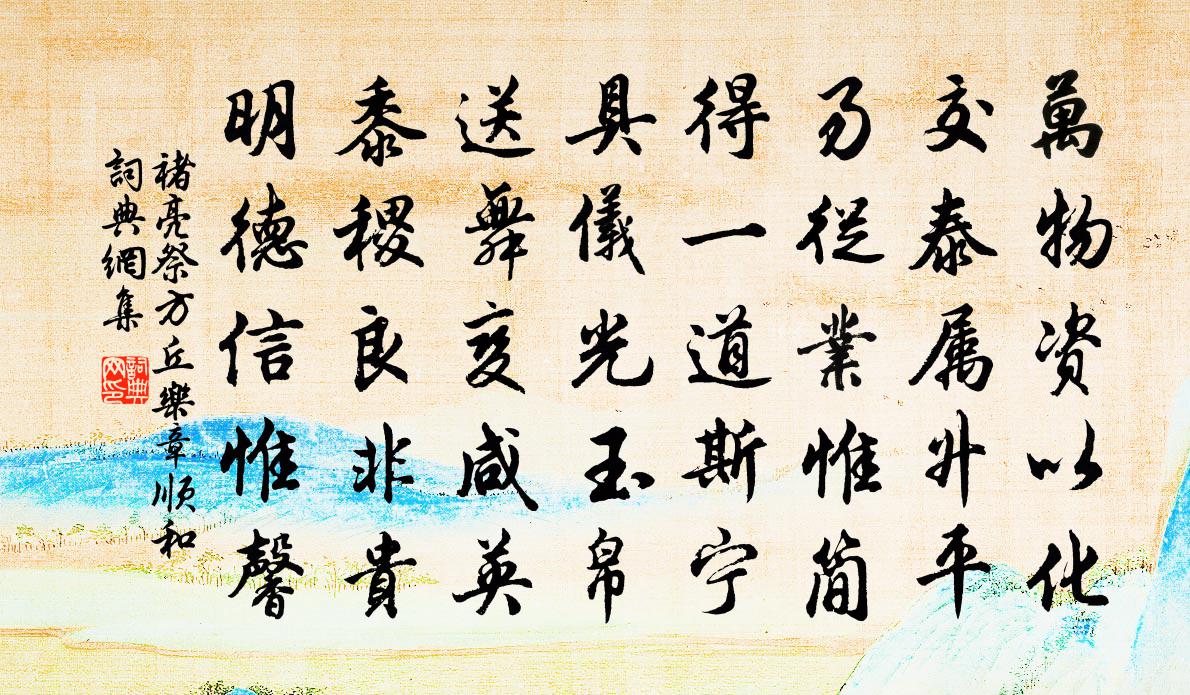 萬物资以化
交泰属升平
易從業惟简
得一道斯宁
具儀光玉帛
送舞变咸英
黍稷良非貴
明德信惟馨
褚亮祭方丘樂章順和
詞典網集
詞典